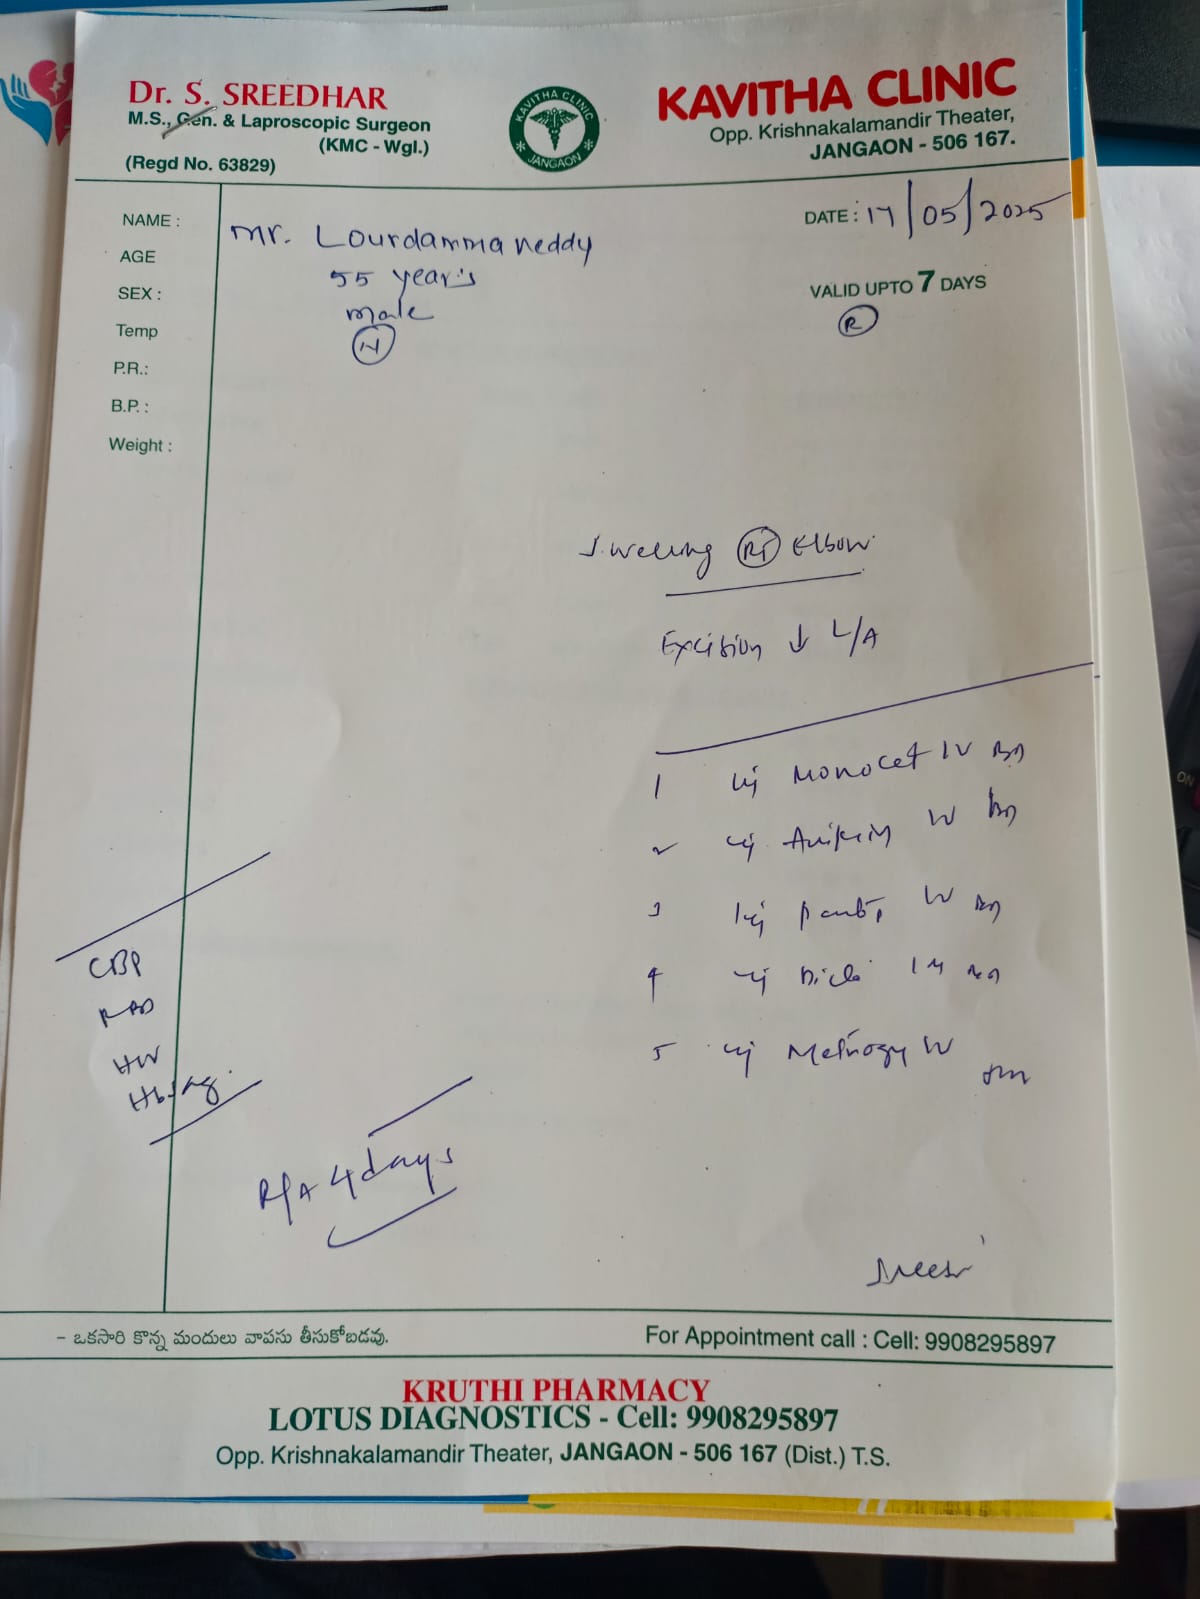 Dr. S. SREEDHAR
M.S., Gen. & Laproscopic Surgeon
(KMC - Wgl.)
(Regd No. 63829)
KAVITHA CLINIC
JANGAON
KAVITHA CLINIC
Opp. Krishnakalamandir Theater,
JANGAON - 506 167.
NAME : Mr. Lourdamma reddy
DATE : 17/05/2025
AGE 55 year's
SEX : male
VALID UPTO 7 DAYS
R
Temp N
P.R.:
B.P. :
Weight :
Swelling RT Elbow
Excision ↓ L/A
1 inj Monocef IV BD
2 inj IV BD
3 inj IV BD
4 inj Diclo IM BD
5 inj Metrogyl IV
CBP
RBS
HIV
HbsAg.
R/A 4 days
- ఒకసారి కొన్న మందులు వాపసు తీసుకోబడవు.
For Appointment call : Cell: 9908295897
KRUTHI PHARMACY
LOTUS DIAGNOSTICS - Cell: 9908295897
Opp. Krishnakalamandir Theater, JANGAON - 506 167 (Dist.) T.S.